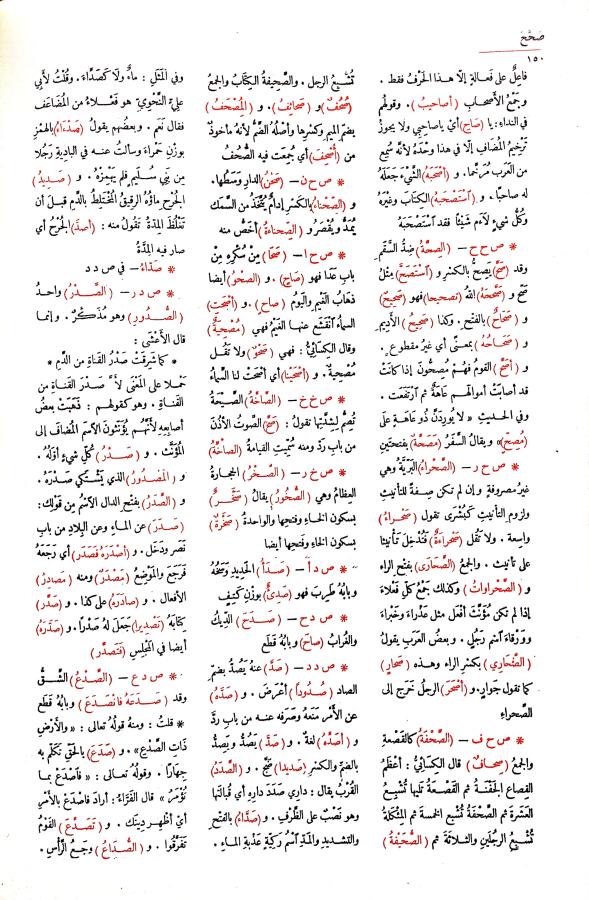 صَحَّحَ
١٥٠
فاعِلٌ على فَعالةٍ إلّا هذا الحَرْفُ فقط .
وجَمْعُ الأَصحابِ ( أصاحيبُ ) . وقولُهم
في النداءِ : يا ( صَاحِ ) أيْ ياصاحبي ولا يجوزُ
تَرْخيمُ المُضافِ إلّا في هذا وَحْدَهُ لأنّه سُمِعَ
من العَربِ مُرَخَّما . و ( أَصْحَبَهُ ) الشَّيْءَ جَعَلَهُ
له صاحبًا . و ( ٱسْتَصْحَبَهُ ) الكتابَ وغيرَهُ
وكُلُّ شيءٍ لاءَمَ شَيْئًا فقد ٱسْتَصْحَبَهُ
* ص ح ح – ( الصِّحَّةُ ) ضِدُّ السَّقَمِ
وقد ( صَحَّ ) يَصِحُّ بالكسْرِ و ( ٱسْتَصَحَّ ) مِثْلُ
صَحَّ و ( صَحَّحَهُ ) اللهُ ( تصحيحا ) فهو ( صَحِيحٌ )
و ( صَحَاحٌ ) بالفتح . وكذا ( صَحِيحُ ) الأديمِ
و ( صَحَاحُهُ ) بمعنًى أي غيرُ مقطوعٍ .
و ( أَصَحَّ ) القومُ فهُمْ مُصِحُّونَ إذا كانَتْ
قد أصابَتْ أموالَهم عَاهَةٌ ثم ٱرْتَفَعَت .
وفي الحديثِ « لا يُورِدَنَّ ذُو عَاهَةٍ على
( مُصِحٍّ ) » ويقالُ السَّفَرُ ( مَصَحَّةٌ ) بفتحتين
* ص ح ر – ( الصَّحْراءُ ) البَرِّيَّةُ وهي
غيرُ مصروفةٍ وإن لم تكن صِفةً للتأنيثِ
ولزومِ التأنيثِ كَبُشْرَى تقول ( صَحْراءُ )
واسعة . ولا تَقُلْ ( صَحْراءَةٌ ) فَتُدْخِلَ تأنيثا
على تأنيث . والجمعُ ( الصَّحَارَى ) بفتح الراء
و ( الصَّحْراواتُ ) وكذلك جَمْعُ كلِّ فَعْلاءَ
إذا لم تكن مُؤَنَّثَ أفعَل مثل عَذْراءَ وخَبْراءَ
ووَرْقاءَ ٱسْم رجُلٍ . وبعضُ العَربِ يقولُ
( الصَّحَارِي ) بكسْرِ الراءِ وهذه ( صَحَارٍ )
كما تقول جَوارٍ . و ( أَصْحَرَ ) الرجلُ خَرَجَ إلى
الصَّحراءِ
* ص ح ف – ( الصَّحْفَةُ ) كالقَصْعةِ
والجمعُ ( صِحافٌ ) قال الكِسائيُّ : أعْظَمُ
القِصاعِ الجَفْنةُ ثم القَصْعةُ تَلِيها تُشْبِعُ
العَشَرَةَ ثم الصَّحْفةُ تُشْبِعُ الخمسةَ ثم المِئْكَلةُ
تُشْبِعُ الرجُلَينِ والثلاثةَ ثم ( الصُّحَيْفَةُ )
تُشْبِعُ الرجل . والصَّحِيفةُ الكِتابُ والجمعُ
( صُحُفٌ ) و ( صَحَائِفُ ) . و ( المُصْحَفُ )
بضم الميم وكسْرِها وأَصْلُهُ الضَّمُّ لأنَّهُ مأخوذٌ
من ( أُصْحِفَ ) أي جُمِعَتْ فيه الصُّحُفُ
* ص ح ن – ( صَحْنُ ) الدارِ وَسَطُها .
و ( الصِّحْناءُ ) بالكَسْرِ إدامٌ يُتَّخَذُ من السَّمَك
يُمَدُّ ويُقْصَرُ و ( الصِّحْناءةُ ) أخَصُّ منه
* ص ح ا – ( صَحَا ) مِنْ سُكْرِهِ مِنْ
بابِ عَدَا فهو ( صاحٍ ) . و ( الصَّحْوُ ) أيضا
ذَهابُ الغَيْمِ واليومُ ( صاحٍ ) . و ( أَصْحَتِ )
السماءُ ٱنْقَشَعَ عنها الغَيْمُ فهي ( مُصْحِيةٌ )
وقال الكِسائيُّ : فهي ( صَحْوٌ ) ولا تَقُل
مُصْحِيةٌ . و ( أَصْحَيْنا ) أي أَصْحَتْ لنا السَّماءُ
* ص خ خ – ( الصَّاخَّةُ ) الصَّيْحةُ
تُصِمُّ لِشِدَّتِها تقولُ : ( صَخَّ ) الصَّوْتُ الأُذُنَ
من باب رَدَّ ومنه سُمِّيَتِ القيامةُ ( الصاخَّةُ )
* ص خ ر – ( الصَّخْرُ ) الحِجارةُ
العِظامُ وهي ( الصُّخُورُ ) يقالُ ( صَخْرٌ )
بسكون الخاءِ وفتحِها والواحدةُ ( صَخْرَةٌ )
بسكون الخاءِ وفتحِها أيضا
* ص د أ – ( صَدَأُ ) الحَديدِ وَسَخُهُ
وبابُهُ طَرِبَ فهو ( صَدِئٌ ) بوزْنِ كَتِفٍ
* ص د ح – ( صَدَحَ ) الدِّيكُ
والغُرابُ ( صاحَ ) وبابُهُ قَطَعَ
* ص د د – ( صَدَّ ) عنهُ يَصُدُّ بضمّ
الصاد ( صُدُودًا ) أعْرَضَ . و ( صَدَّهُ )
عن الأمْرِ مَنَعَهُ وصَرَفَه عنه من باب رَدَّ
و ( أَصَدَّهُ ) لغةٌ . و ( صَدَّ ) يَصُدُّ ويَصِدُّ
بالضم والكسْرِ ( صَدِيدا ) ضَجَّ . و ( الصَّدَدُ )
القُرْبُ يقال : داري صَدَدَ دارِهِ أي قُبالتَها
وهو نَصْبٌ على الظَّرْف . و ( صَدَّاءُ ) بالفتحِ
والتشديدِ والمَدِّ ٱسْمُ رَكِيَّةٍ عَذْبةِ الماءِ .
وفي المَثَلِ : ماءٌ ولا كَصَدَّاءَ . وقُلْتُ لأَبِي
عليٍّ النَّحْويِّ هو فَعْلاءُ من المُضاعَف
فقال نَعَم . وبعضُهم يقولُ ( صَدْءَاءُ ) بالهمْزِ
بوزْنِ حَمْراءَ وسألتُ عنه في البادِيةِ رَجُلًا
مِن بَنِي سُلَيمٍ فلم يَهْمِزْهُ . و ( صَدِيدُ )
الجُرْحِ ماؤُهُ الرقيقُ المُخْتَلِطُ بالدَّمِ قبلَ أن
تَغْلُظَ المِدَّةُ تقولُ منه : ( أَصَدَّ ) الجُرْحُ أي
صار فيه المِدَّةُ
* صَدَّاءُ – في ص د د
* ص د ر – ( الصَّدْرُ ) واحدُ
( الصُّدُورِ ) وهو مُذَكَّرٌ . وإنما
قال الأعْشَى :
* كما شَرِقَتْ صَدْرُ القَناةِ من الدَّمِ *
حَمْلًا على المَعْنَى لأَنَّ صَدْرَ القَناةِ من
القَناةِ . وهو كقولهم : ذَهَبَتْ بعضُ
أصابِعِه لأَنَّهم يُؤَنِّثونَ الاسمَ المُضافَ إلى
المُؤَنَّث . و ( صَدْرُ ) كُلِّ شيءٍ أوّلُهُ .
و ( المَصْدُورُ ) الذي يَشْتَكِي صَدْرَهُ .
و ( الصَّدَرُ ) بفَتْحِ الدال الاسْمُ مِن قَوْلِكَ :
( صَدَرَ ) عن الماءِ وعن البِلادِ من باب
نَصَر ودَخَل . و ( أَصْدَرَهُ فَصَدَرَ ) أي رَجَعَهُ
فَرَجَعَ والمَوْضِعُ ( مَصْدَرٌ ) ومنه ( مَصَادِرُ )
الأفعال . و ( صادَرَهُ ) على كذا . و ( صَدَّرَ )
كِتابَهُ ( تَصْدِيرا ) جَعَلَ له صَدْرًا . و ( صَدَّرَهُ )
أيضا في المَجْلِسِ ( فَتَصَدَّرَ )
* ص د ع – ( الصَّدْعُ ) الشَّقُّ
وقد ( صَدَعَهُ فَانْصَدَعَ ) وبابُهُ قَطَعَ
* قلتُ : ومنهُ قولُهُ تعالى : « والأَرْضِ
ذَاتِ الصَّدْعِ » . و ( صَدَعَ ) بالحَقِّ تَكَلَّم به
جِهَارًا . وقولُهُ تعالى : « فاصْدَعْ بما
تُؤْمَرُ » قال الفَرَّاءُ : أرادَ فاصْدَعْ بالأَمْرِ
أي أظْهِرْ دِينَك . و ( تَصَدَّعَ ) القَوْمُ
تَفَرَّقُوا . و ( الصُّدَاعُ ) وجَعُ الرأْسِ .